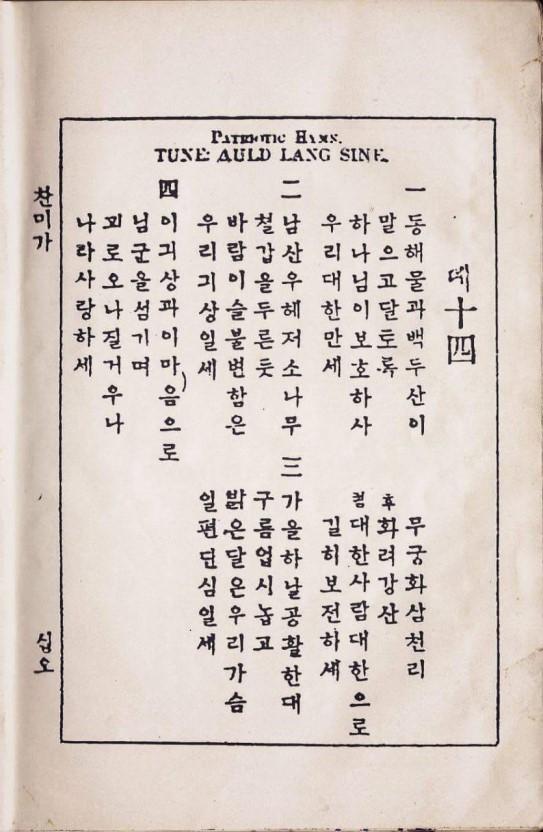 PATRIOTIC HYMN.
TUNE: AULD LANG SINE.
뎨十四
一
동해물과백두산이
말으고달토록
하나님이보호하사
우리대한만세
後렴
무궁화삼천리
화려강산
대한사람대한으로
길히보전하세
二
남산우헤저소나무
철갑을두른듯
바람이슬불변함은
우리긔상일세
三
가을하날공활한대
구름업시놉고
밝은달은우리가슴
일편단심일세
四
이긔상과이마음으로
님군을섬기며
괴로오나질거우나
나라사랑하세
찬미가
십오